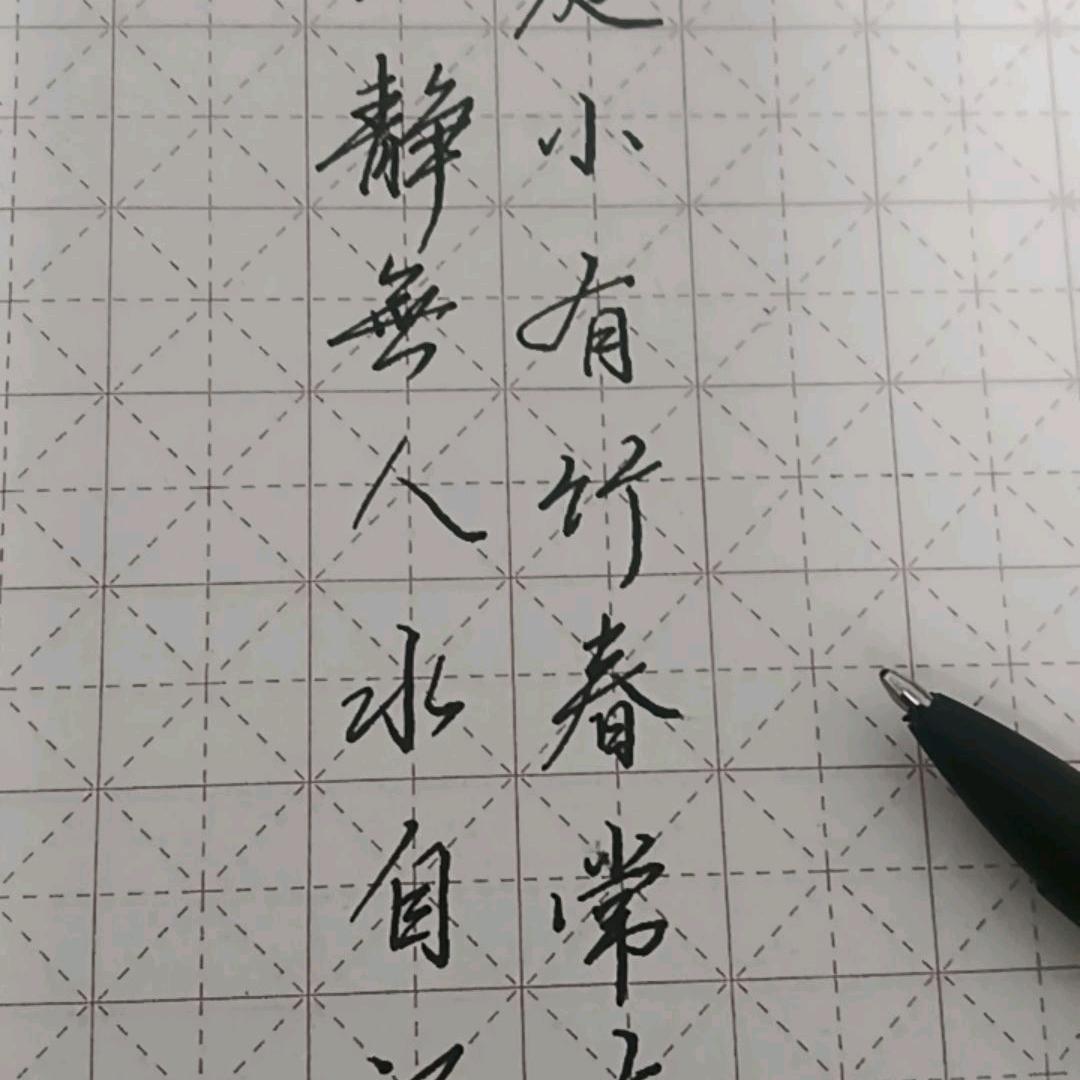 小有竹春常
静無人水自